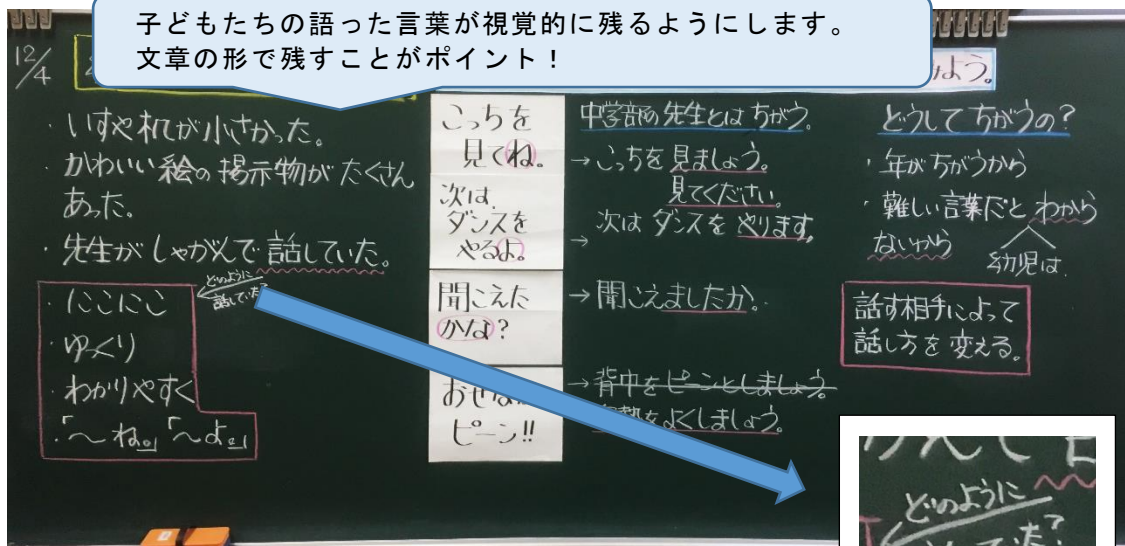 子どもたちの語った言葉が視覚的に残るようにします。
文章の形で残すことがポイント！
12/4
よう。
・いすや机が小さかった。
・かわいい絵の掲示物がたくさん
あった。
・先生がしゃがんで話していた。
どのように
話していた?
・にこにこ
・ゆっくり
・わかりやすく
・「～ね。」「～よ。」
こっちを
見てね。
次は、
ダンスを
やるよ。
聞こえた
かな?
ピーン!!
中学部の先生とはちがう。
→こっちを見ましょう。
見てください。
→次はダンスをやります。
→聞こえましたか。
→背中をピーンとしましょう。
をよくしましょう。
どうしてちがうの?
・年がちがうから
・難しい言葉だとわから
ないから
幼児は
話す相手によって
話し方を変える。
どのように